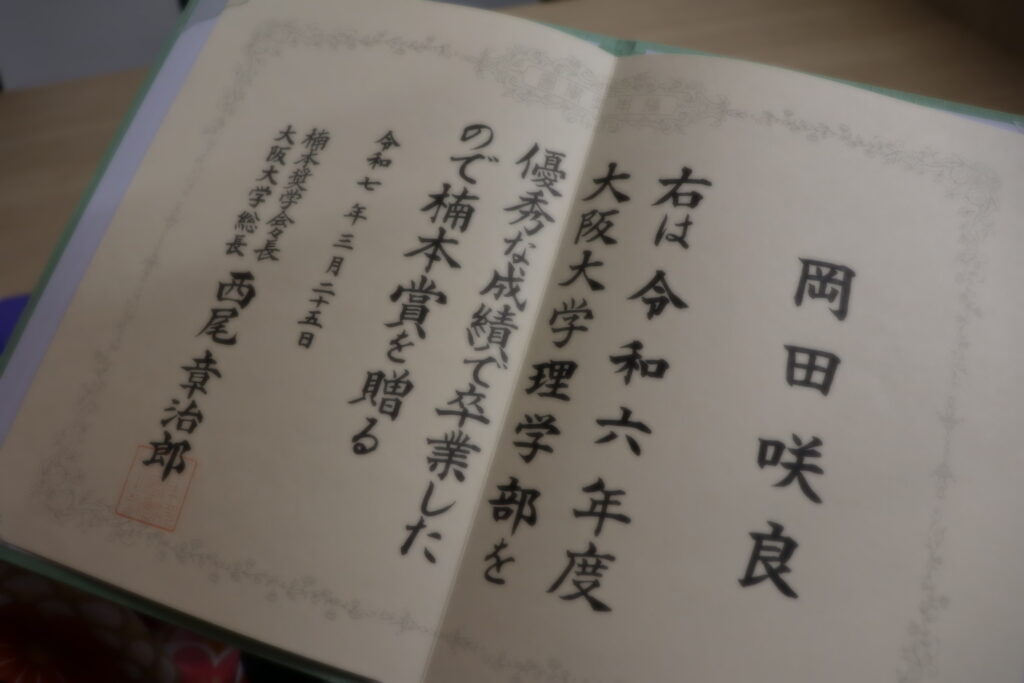 岡田咲良
右は令和六年度
大阪大学理学部を
優秀な成績で卒業した
ので楠本賞を贈る
令和七年三月二十五日
楠本奨学会会長
大阪大学総長
西尾章治郎